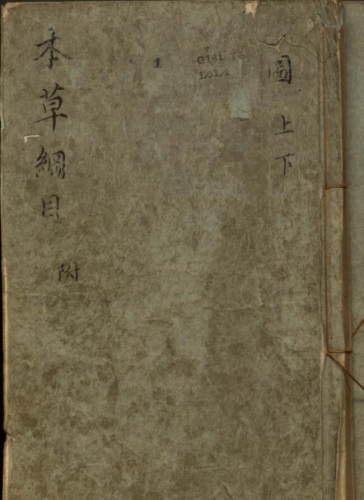 圖 上 下
本草綱目
附